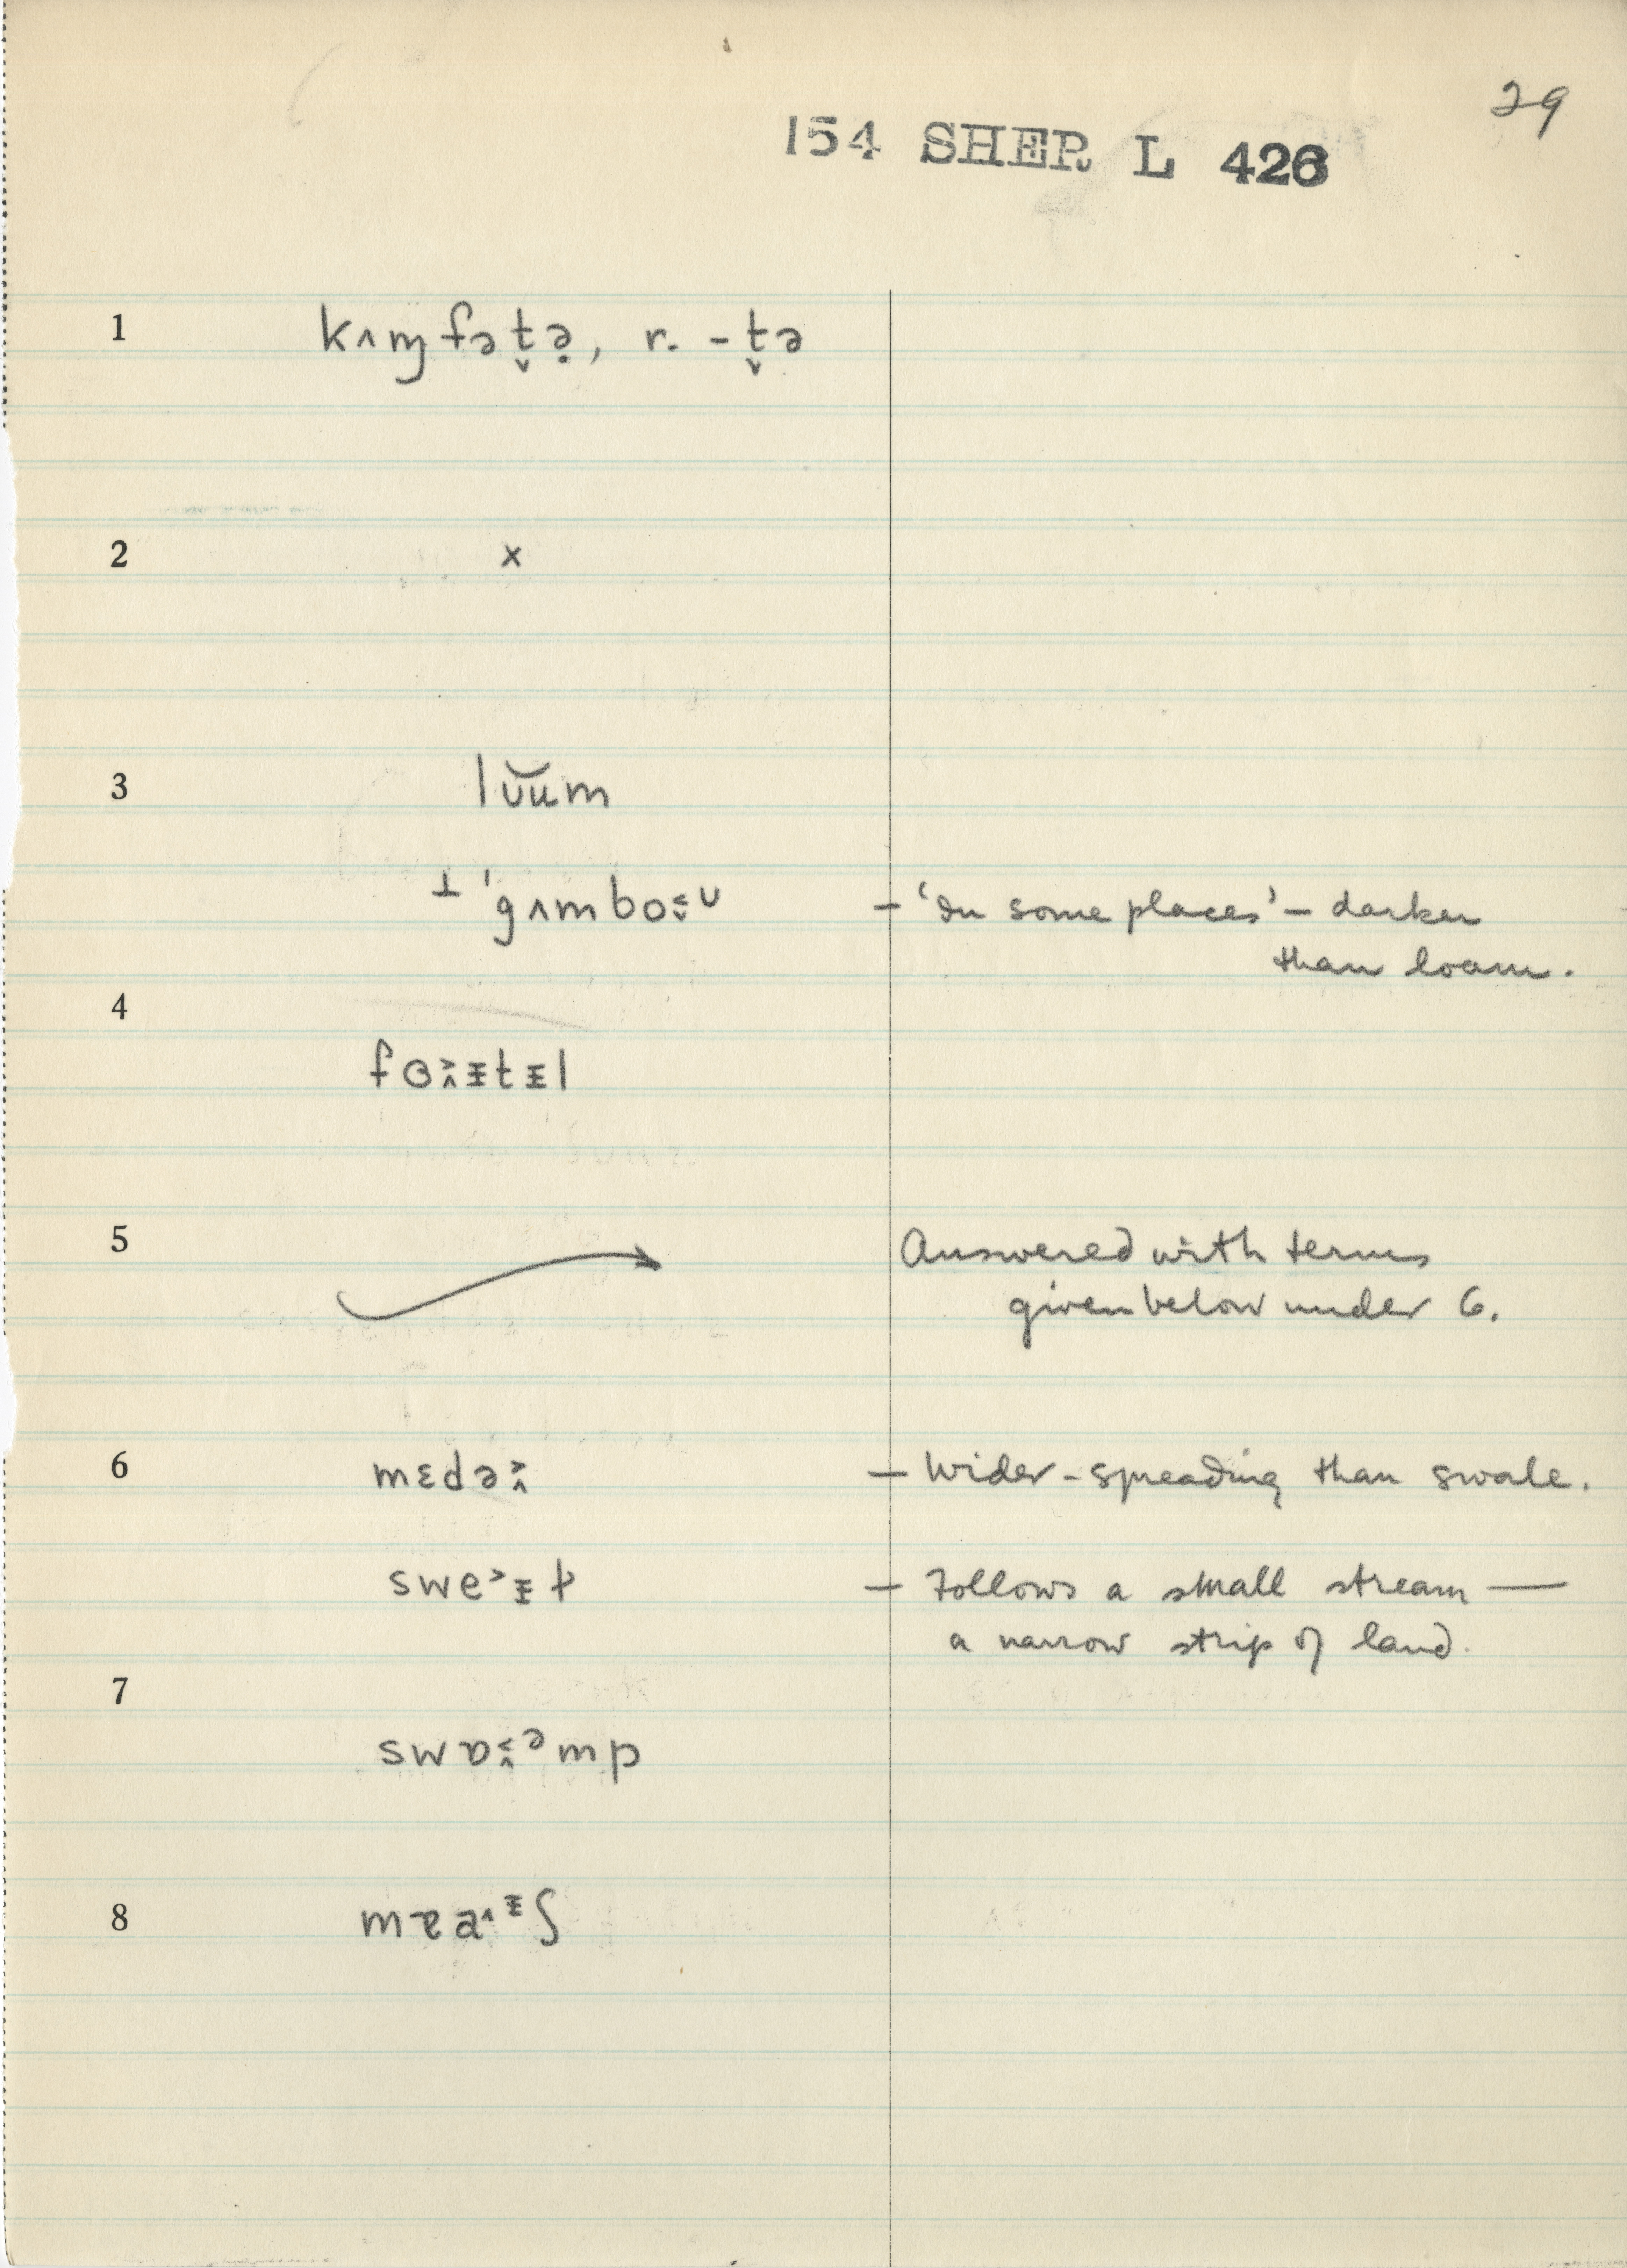 29
154 SHER L 426
1 kʌɱfət̬ə̣, r. -t̬ə
2 x
3 lʊ̆um
⊥ 'gʌmbo˂˅ᵁ - ‘In some places’ - darker
than loam.
4
fɵ˃˄ᵻtᵻl
5 Answered with terms
given below under 6.
6 mɛdə˃˄ - Wider-spreading than swale.
swe˃ᵻɫ - Follows a small stream —
a narrow strip of land.
7
swɒ˂˄ᵊmp
8 mɐa˄ᵻʃ